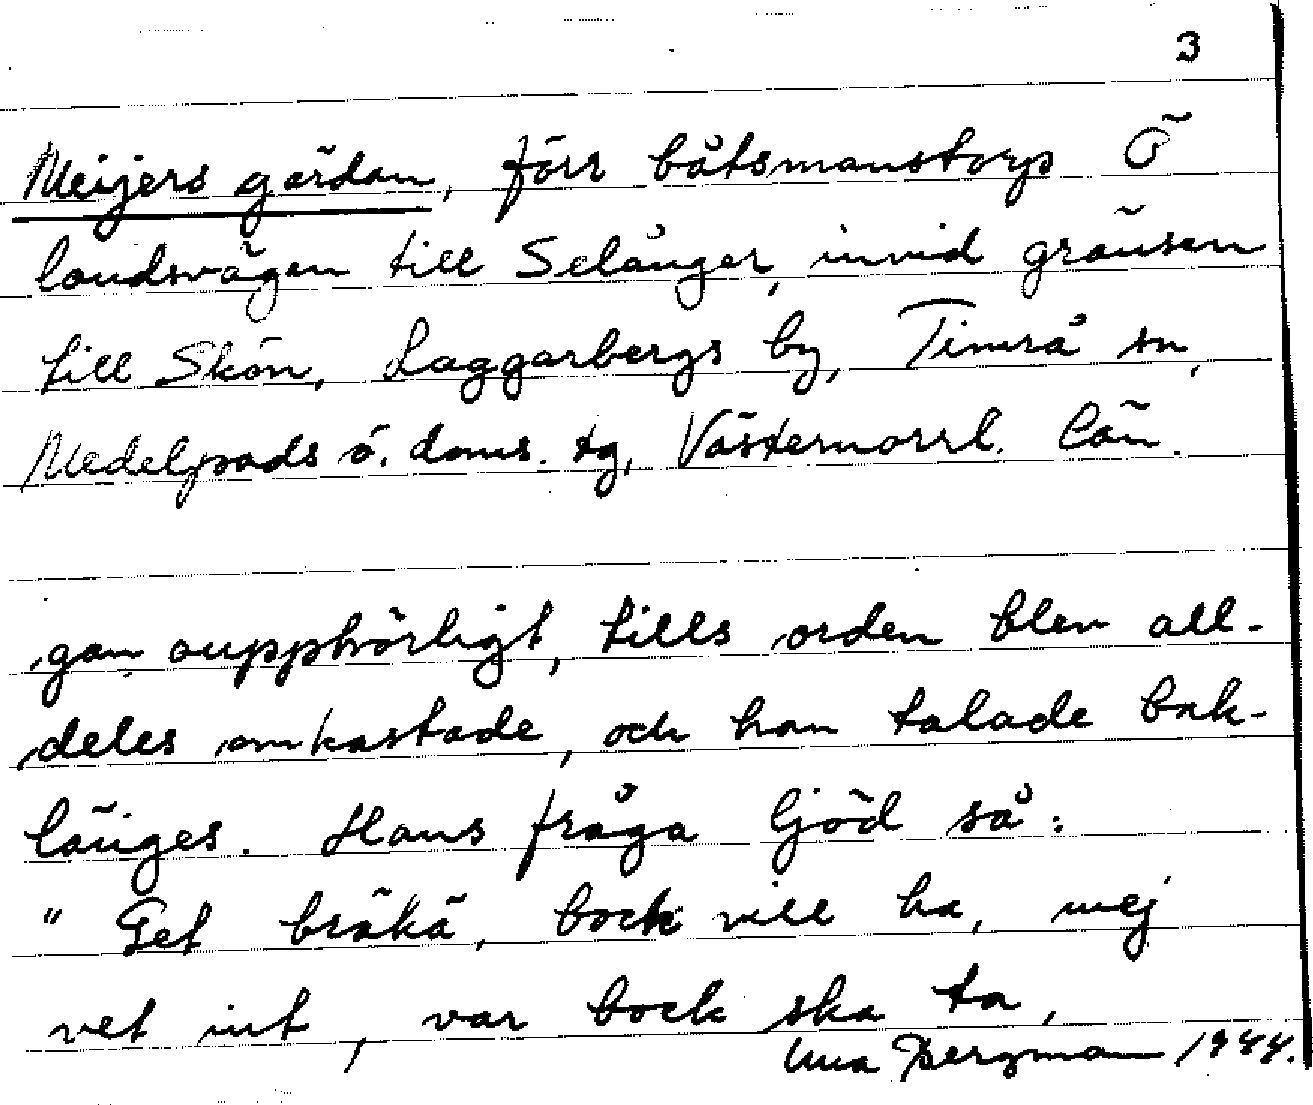 3
Meijers gärdan, förr båtsmanstorp Ö
landsvägen till Selånger, invid gränsen
till Skön, Laggarbergs by, Timrå sn,
Medelpads ö. doms. tg, Västernorrl. län.
gan oupphörligt, tills orden blev all-
deles omkastade, och han talade bak-
länges. Hans fråga ljöd så:
" Get bräkä, bock vill ha, mej
vet int, var bock ska ta,
Una Bergman 1944.